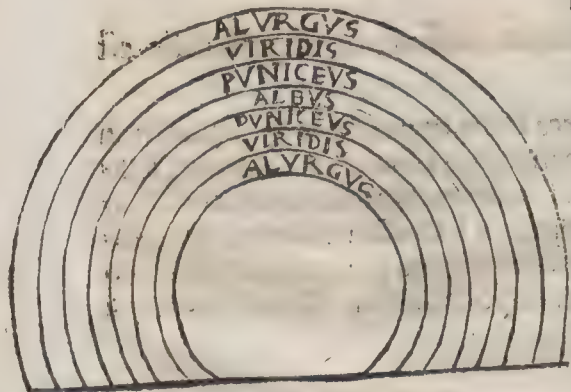 ALVRGVS
VIRIDIS
PVNICEVS
ALBVS
PVNICEVS
VIRIDIS
ALVRGVC